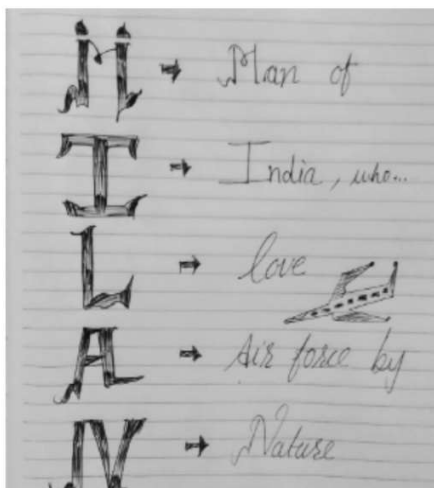 M → Man of
I → India, who...
L → love
A → Air force by
N → Nature